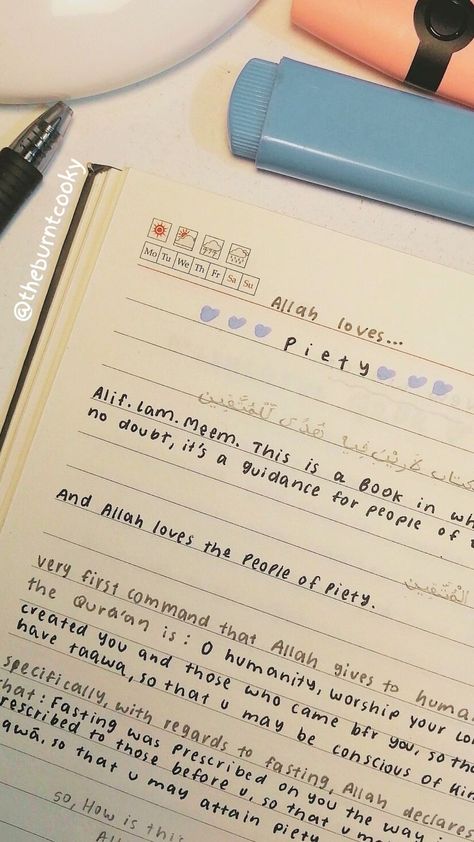 @theburntcooky
Mo Tu We Th Fr Sa Su
Allah loves...
Piety
فيه هُدًى لِّلْمُتَّقِينَ
Alif. Lam. Meem. This is a Book in
no doubt, it's a guidance for people of
And Allah loves the people of Piety.
الْمُتَّقِينَ
very first command that Allah gives to
the Qurā'an is: O humanity, worship your
created you and those who came bfr you, so
have taqwa, so that u may be conscious of
specifically, with regards to fasting, Allah declares
that: Fasting was prescribed on you the way:
prescribed to those before u, so that u
so that u may attain Piety
so, How is this